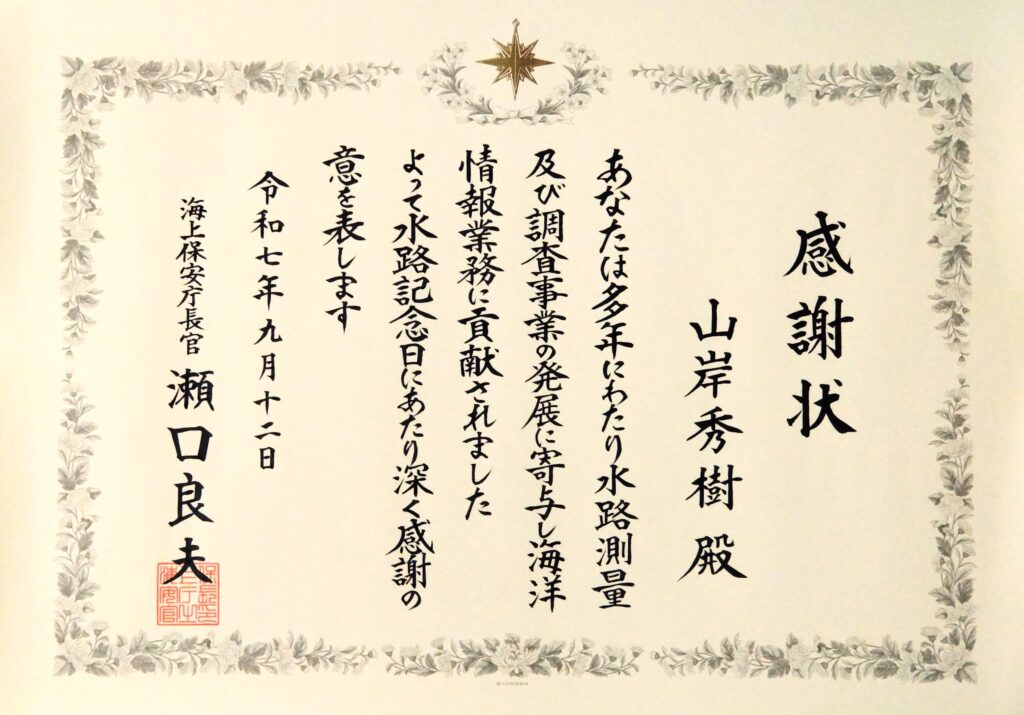 感謝状
山岸秀樹 殿
あなたは多年にわたり水路測量
及び調査事業の発展に寄与し海洋
情報業務に貢献されました
よって水路記念日にあたり深く感謝の
意を表します
令和七年九月十二日
海上保安庁長官 瀬口良夫